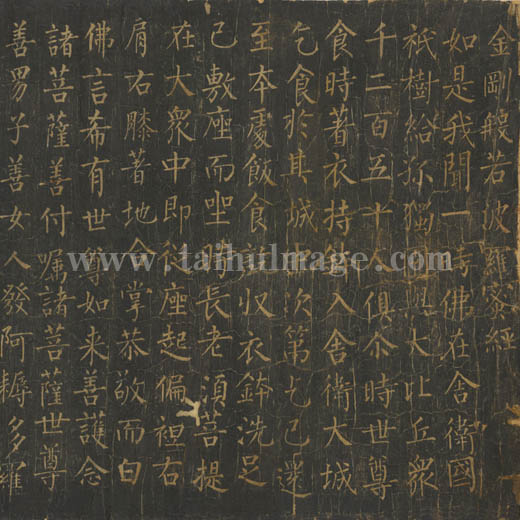 金剛般若波羅蜜經
如是我聞一時佛在舍衛國
祇樹給孤獨園與大比丘衆
千二百五十人俱尒時世尊
食時著衣持鉢入舍衛大城
乞食於其城中次第乞已還
至本處飯食訖収衣鉢洗足
已敷座而坐時長老須菩提
在大衆中即從座起偏袒右
肩右膝著地合掌恭敬而白
佛言希有世尊如来善護念
諸菩薩善付嘱諸菩薩世尊
善男子善女人發阿耨多羅
www.taihuImage.com